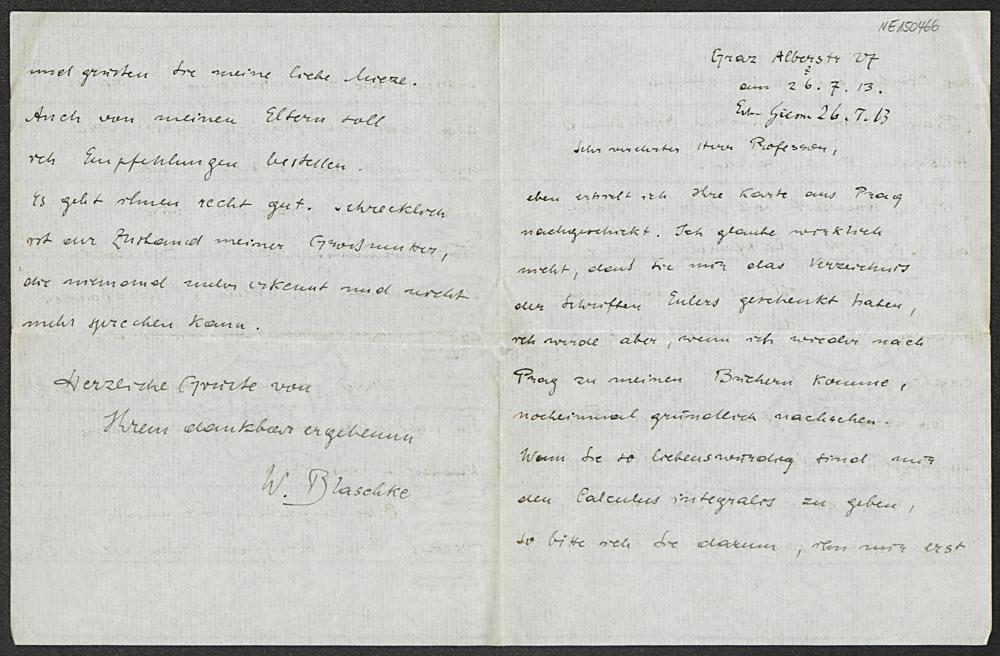 NE150466
Graz Alberstr 27
am 26. 7. 13.
26. 7. 13
Sehr verehrter Herr Professor,
eben erhielt ich Ihre Karte aus Prag
nachgeschickt. Ich glaube wirklich
nicht, dass Sie mir das Verzeichnis
der Schriften Eulers geschenkt haben,
ich werde aber, wenn ich wieder nach
Prag zu meinen Büchern komme,
nocheinmal gründlich nachsehen.
Wenn Sie so liebenswürdig sind mir
den Calculus integralis zu geben,
so bitte ich Sie darum, ihn mir erst
und grüssen Sie meine liebe Mieze.
Auch von meinen Eltern soll
ich Empfehlungen bestellen.
Es geht ihnen recht gut. Schrecklich
ist der Zustand meiner Grossmutter,
die niemand mehr erkennt und nicht
mehr sprechen kann.
Herzliche Grüsse von
Ihrem dankbar ergebenen
W. Blaschke